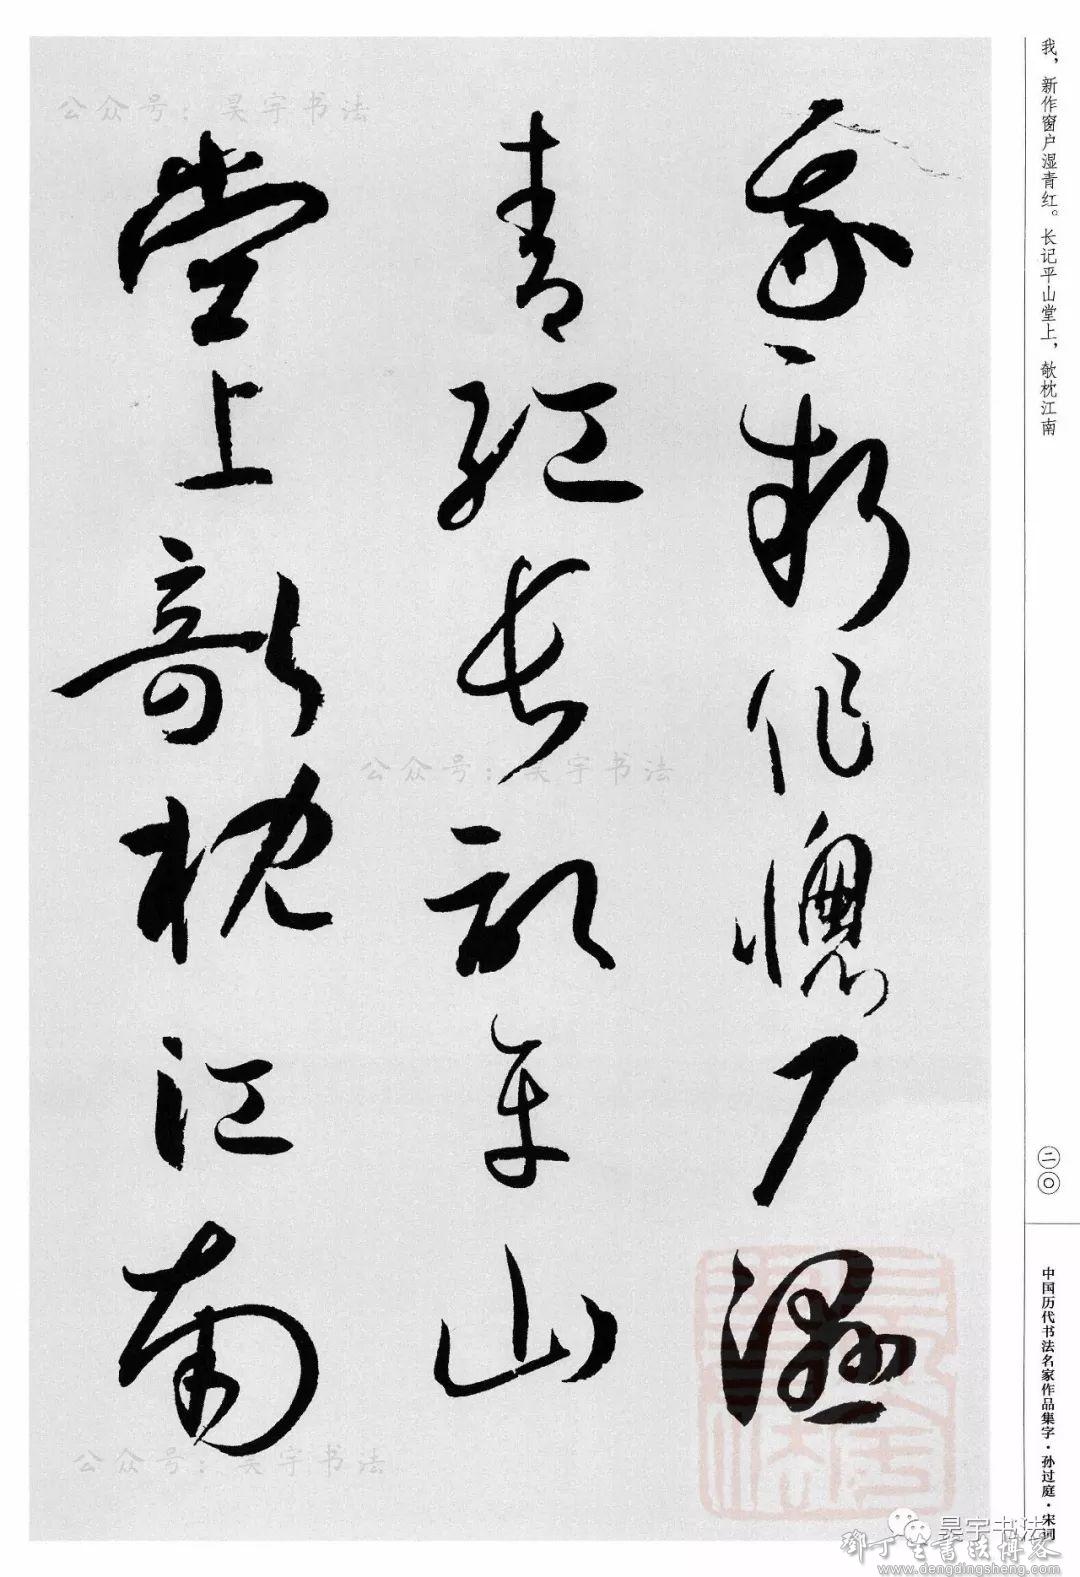 我新作窗户湿
青红长记平山
堂上欹枕江南
我，新作窗户湿青红。长记平山堂上，欹枕江南
二〇
中国历代书法名家作品集字·孙过庭·宋词
公众号：昊宇书法
公众号：昊宇书法
公众号：昊宇书法
昊宇书法
鄧丁生書法博客
www.dengdingsheng.com